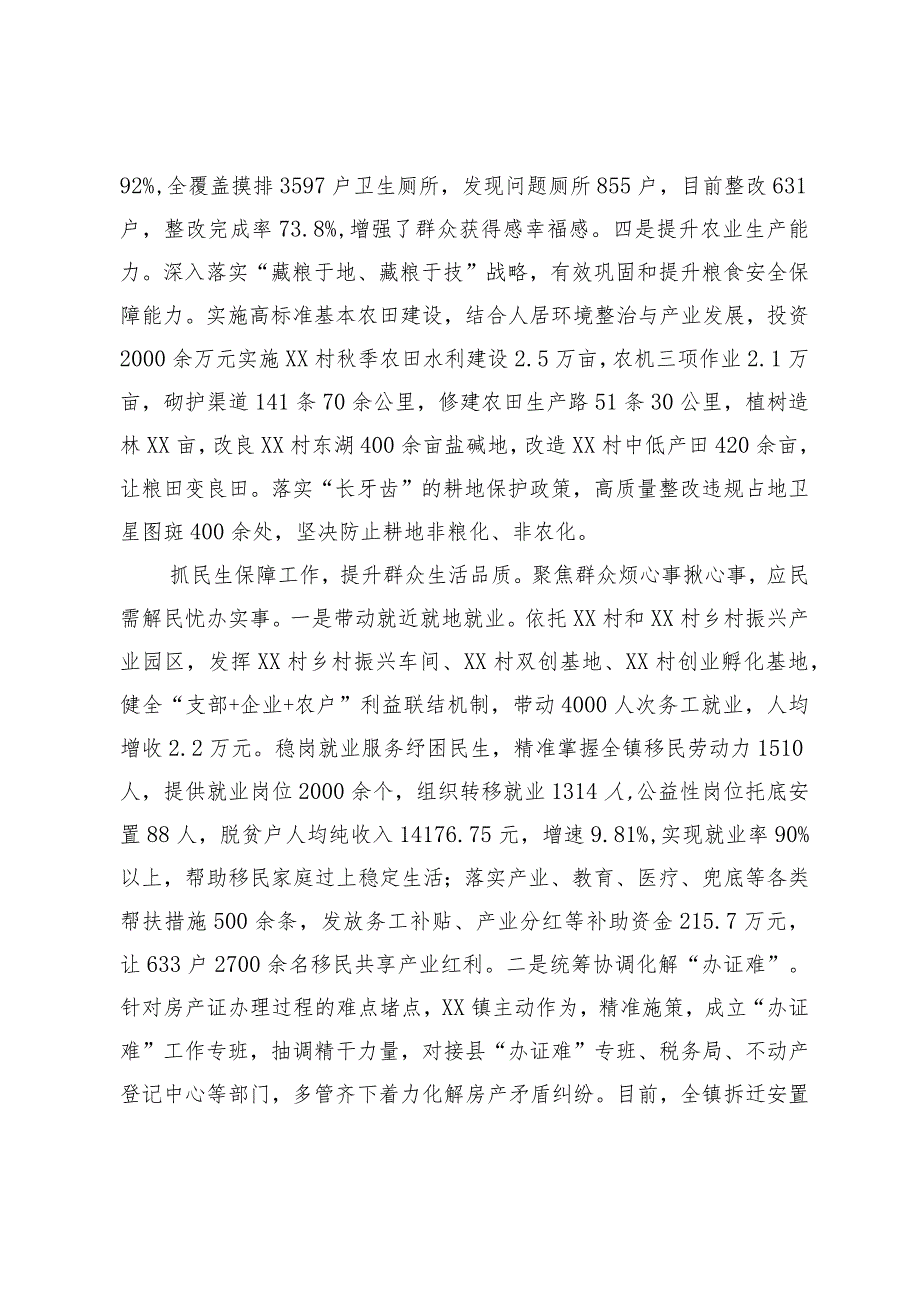 92%,全覆盖摸排 3597 户卫生厕所，发现问题厕所 855 户，目前整改 631
户，整改完成率 73.8%,增强了群众获得感幸福感。四是提升农业生产能
力。深入落实“藏粮于地、藏粮于技”战略，有效巩固和提升粮食安全保
障能力。实施高标准基本农田建设，结合人居环境整治与产业发展，投资
2000 余万元实施 XX 村秋季农田水利建设 2.5 万亩,农机三项作业 2.1 万
亩，砌护渠道 141 条 70 余公里，修建农田生产路 51 条 30 公里，植树造
林 XX 亩,改良 XX 村东湖 400 余亩盐碱地,改造 XX 村中低产田 420 余亩,
让粮田变良田。落实“长牙齿”的耕地保护政策，高质量整改违规占地卫
星图斑 400 余处，坚决防止耕地非粮化、非农化。
抓民生保障工作,提升群众生活品质。聚焦群众烦心事揪心事，应民
需解民忧办实事。一是带动就近就地就业。依托 XX 村和 XX 村乡村振兴产
业园区，发挥 XX 村乡村振兴车间、XX 村双创基地、XX 村创业孵化基地,
健全“支部+企业+农户”利益联结机制，带动 4000 人次务工就业，人均
增收 2.2 万元。稳岗就业服务纾困民生，精准掌握全镇移民劳动力 1510
人，提供就业岗位 2000 余个，组织转移就业 1314 人,公益性岗位托底安
置 88 人，脱贫户人均纯收入 14176.75 元，增速 9.81%,实现就业率 90%
以上，帮助移民家庭过上稳定生活；落实产业、教育、医疗、兜底等各类
帮扶措施 500 余条，发放务工补贴、产业分红等补助资金 215.7 万元，
让 633 户 2700 余名移民共享产业红利。二是统筹协调化解“办证难”。
针对房产证办理过程的难点堵点，XX 镇主动作为，精准施策，成立“办证
难”工作专班，抽调精干力量，对接县“办证难”专班、税务局、不动产
登记中心等部门，多管齐下着力化解房产矛盾纠纷。目前，全镇拆迁安置